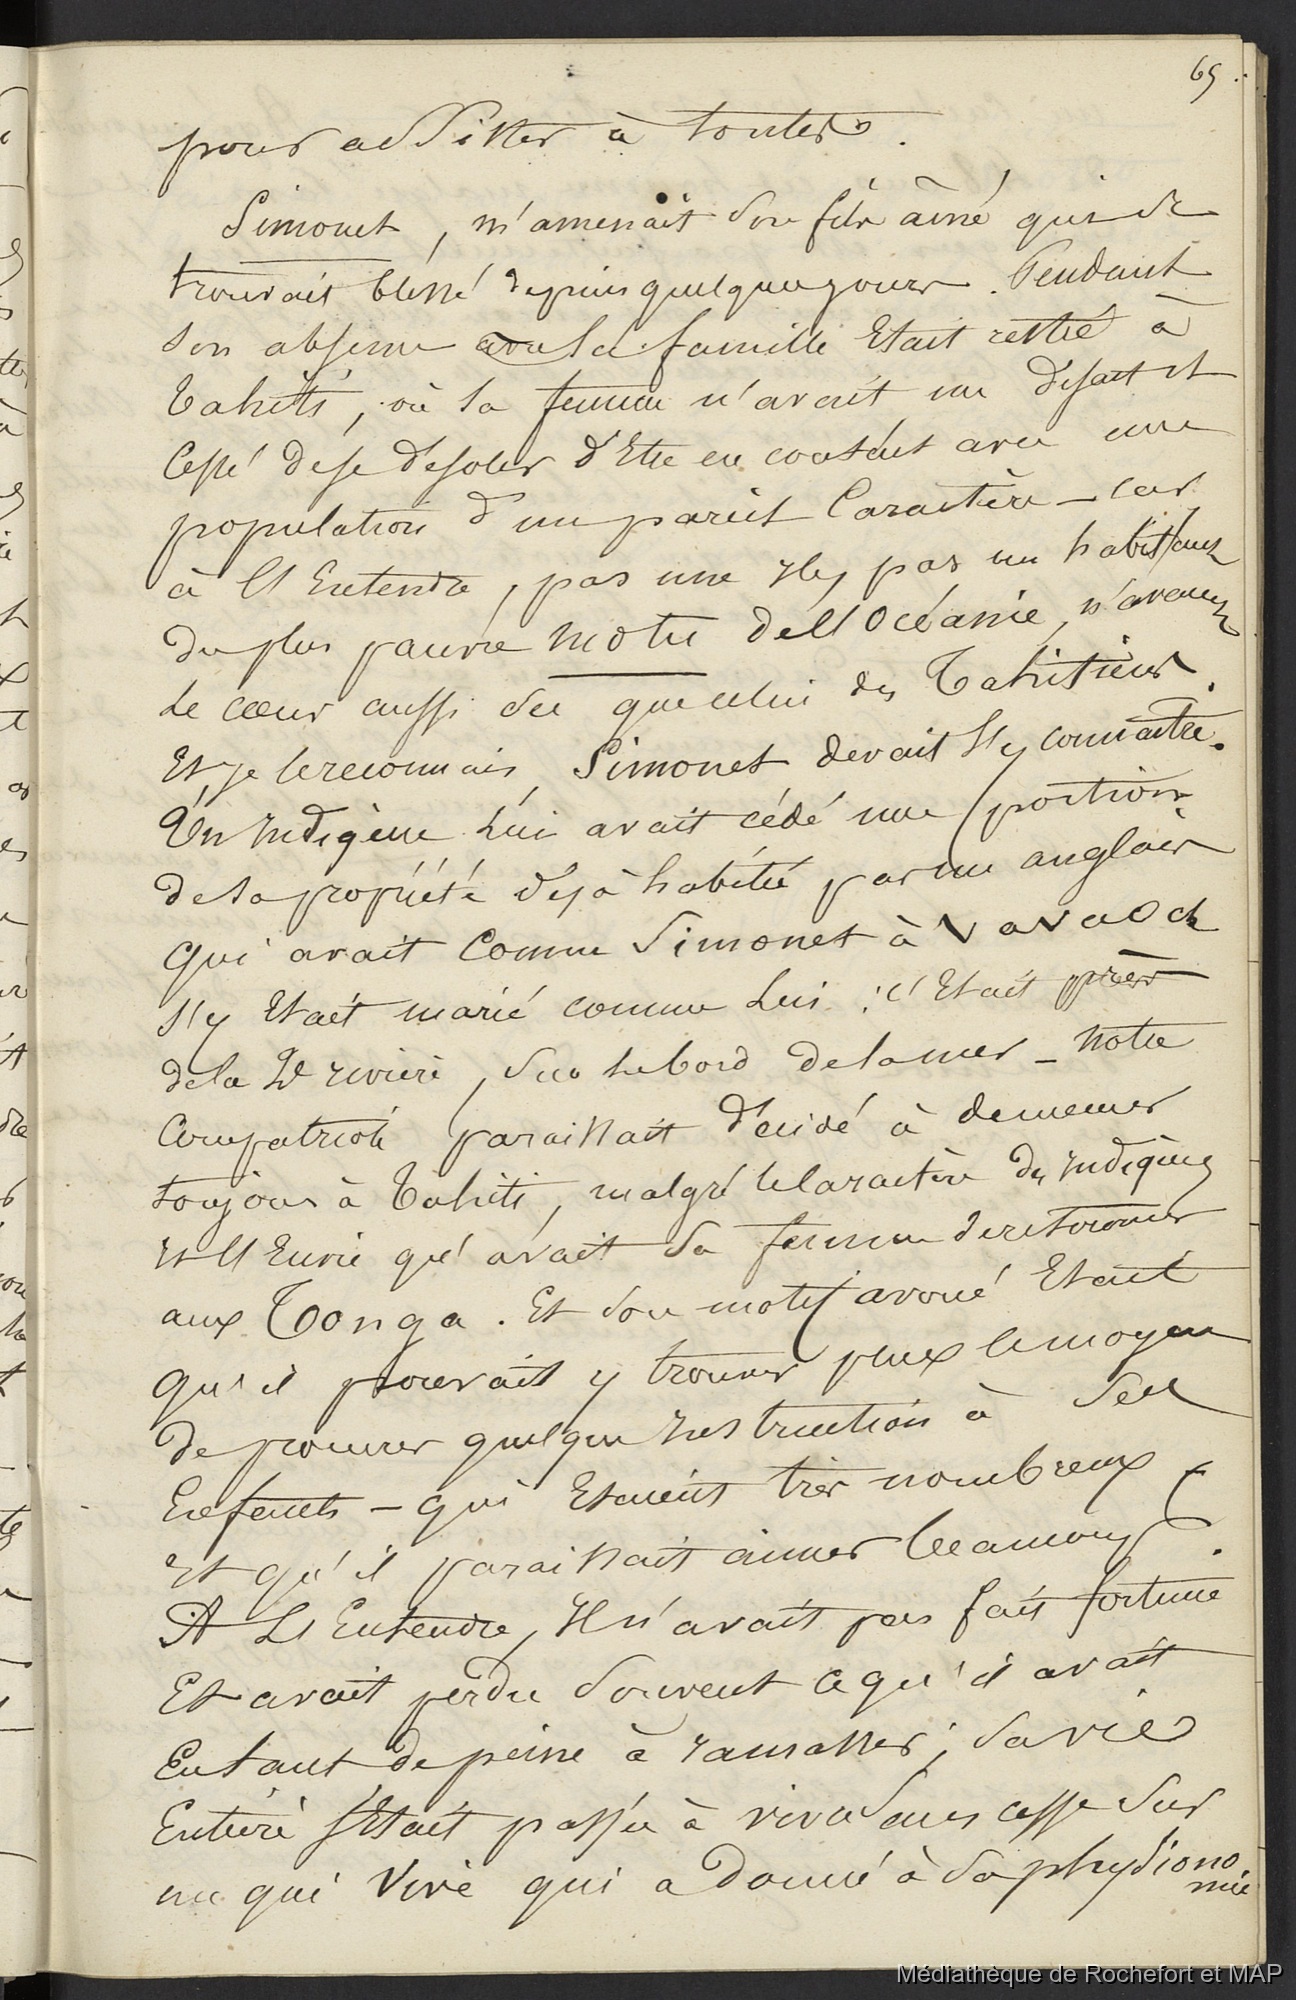 65.
pour assister à toutes.
Simonet, m'amenait son fils ainé qui se
trouvait blessé depuis quelques jours. Pendant
son absence sa famille Etait restée à
Tahiti, où sa femme n'avait disait il
Cessé de se désoler d'Etre en contact avec une
population d'un pareil Caractère — car
à l'Entendre, pas une Iles pas un habitant
du plus pauvre motu de l'Océanie, n'avaient
le cœur aussi sec que celui des Tahitiens.
Et, je le reconnais, Simonet devait s'y connaitre.
Un Indigène Lui avait cédé une portion
de sa propriété déjà habitée par un anglais
qui avait Comme Simonet à Vavao &
s'y Etait marié comme Lui : c'Etait près
de la 2e rivière, sur le bord de la mer — notre
Compatriote paraissait décidé à demeurer
toujours à Tahiti, malgré le Caractère des Indigènes
et l'Envie qu'avait sa femme de retourner
aux Tonga. Et son motif avoué Etait
qu'il pouvait y trouver le moyen
de procurer quelque Instruction à ses
Enfants — qui Etaient très nombreux
et qu'il paraissait aimer beaucoup.
A L'Entendre, Il n'avait pas fait fortune
Et avait perdu souvent ce qu'il avait
Eu tant de peine à ramasser; sa vie
Entière s'Etait passée à vivre sans cesse sur
un qui vive qui a donné à sa physiono
mie
Médiathèque de Rochefort et MAP